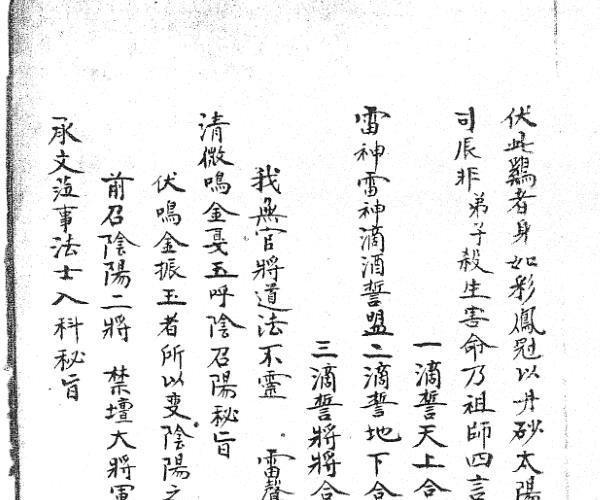 伏此鷄者身如彩鳳冠以丹砂太陽
司辰非弟子殺生害命乃祖師四言
一滴誓天上合
雷神雷神滴酒誓盟二滴誓地下合
三滴誓將將合
我無官將道法不霊 雷聲
清微鳴金戞玉呼陰召陽秘旨
伏鳴金振玉者所以变陰陽之
前召陰陽二將 禁壇大將軍
承文蒞事法士入科秘旨